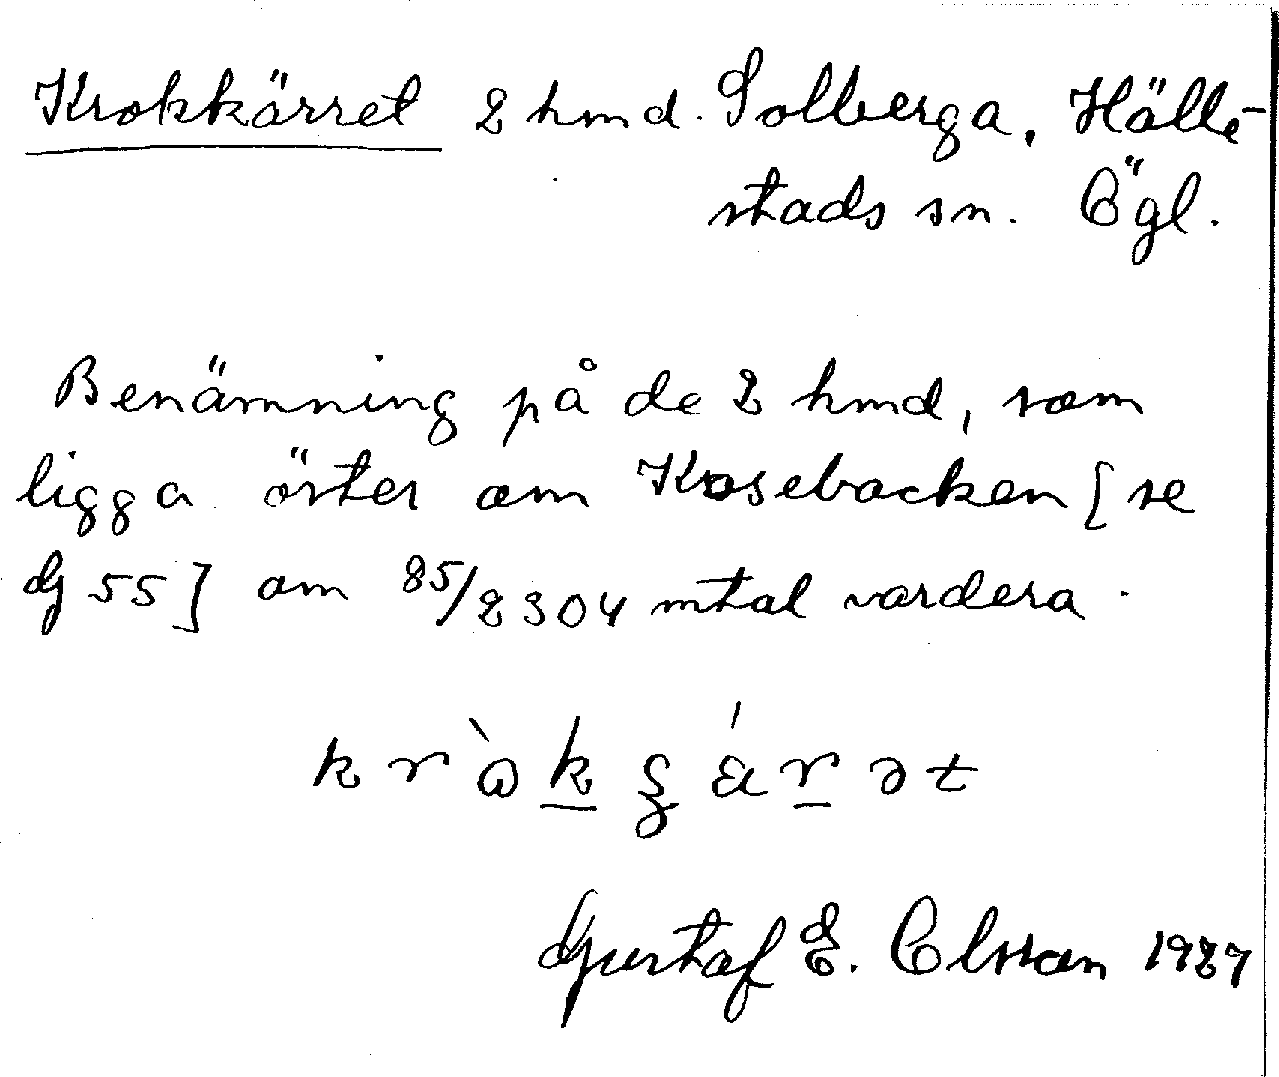 Krokkärret 2 hmd. Solberga, Hälle-
stads sn. Ögl.
Benämning på de 2 hmd, som
ligga öster om Kosebacken [se
G 55] om 85/2304 mtal vardera.
Gustaf E. Olsson 1927